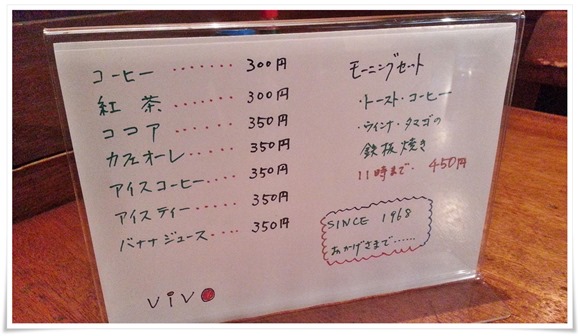 コーヒー ・・・・・・・ 300円
紅茶 ・・・・・・・ 300円
ココア ・・・・・・ 350円
カフェオーレ ・・・・・ 350円
アイスコーヒー ・・・・ 350円
アイスティー ・・・・・ 350円
バナナジュース ・・・・ 350円
vivo
モーニングセット
・トースト・コーヒー
・ウィンナ・タマゴの
鉄板焼き
11時まで・ 450円
SINCE 1968
おかげさまで……